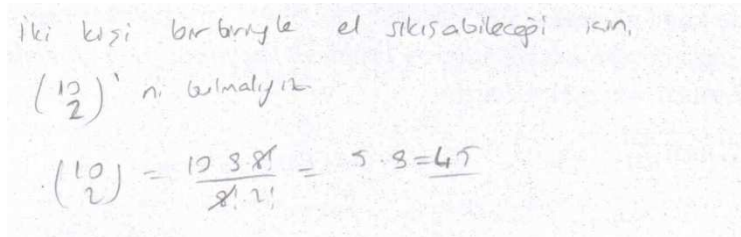 İki kişi birbiriyle el sıkışabileceği için,
(10 2)' ni bulmalıyız
(10 2) = 10 9 8! / 8! 2! = 5 . 9 = 45